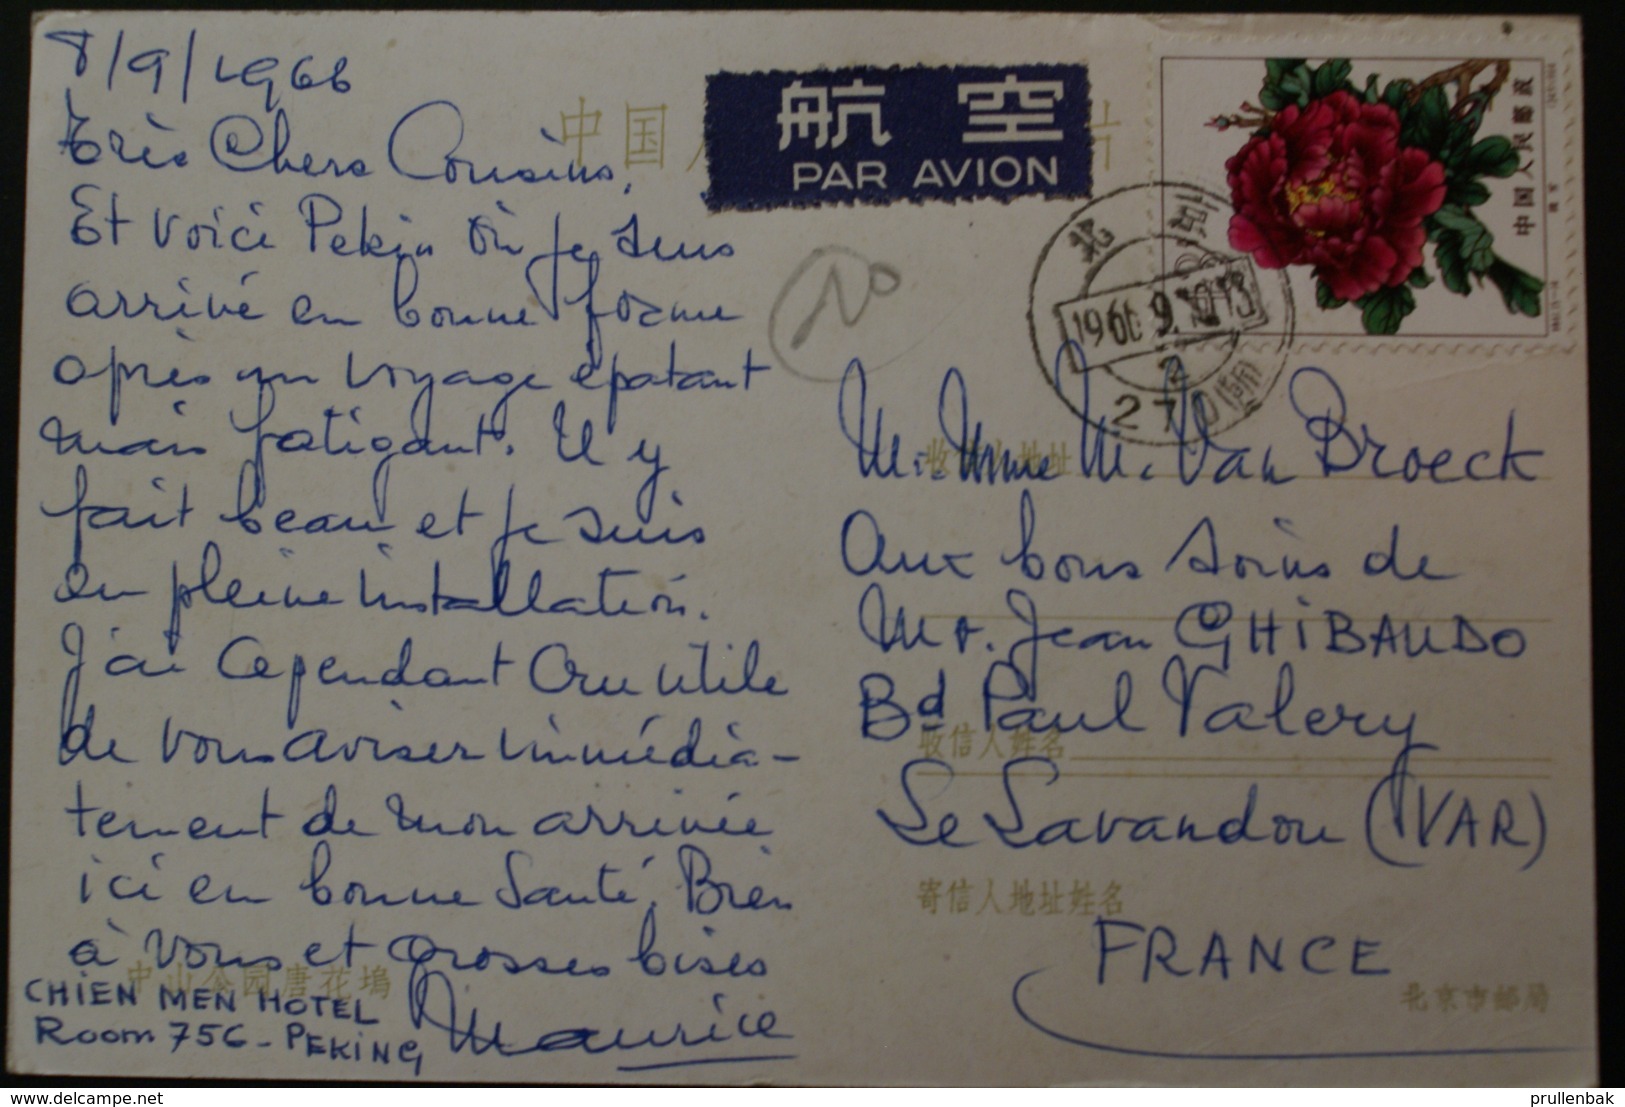 8/9/1966
Très Chers Cousins,
Et voici Pekin où je suis
arrivé en bonne forme
après un voyage épatant
mais fatigant. Il y
fait beau et je suis
en pleine installation.
J'ai cependant cru utile
de vous aviser immédia-
tement de mon arrivée
ici en bonne santé. Bien
à vous et grosses bises
Maurice
CHIEN MEN HOTEL
Room 756 - PEKING
中山公园唐花坞
中国
片
航空
PAR AVION
中国人民邮政
北京
1966.9.
2
27
10
收信人地址
M. Mme M. Van Broeck
Aux bons soins de
Mr. Jean GHIBAUDO
Bd Paul Valery
收信人姓名
Le Lavandou (VAR)
寄信人地址姓名
FRANCE
北京市邮局
prullenbak